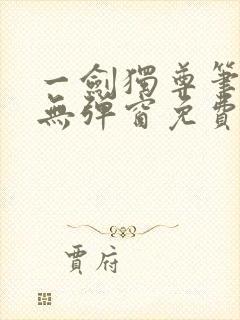 一劍獨尊筆
無彈窗免費
賈府